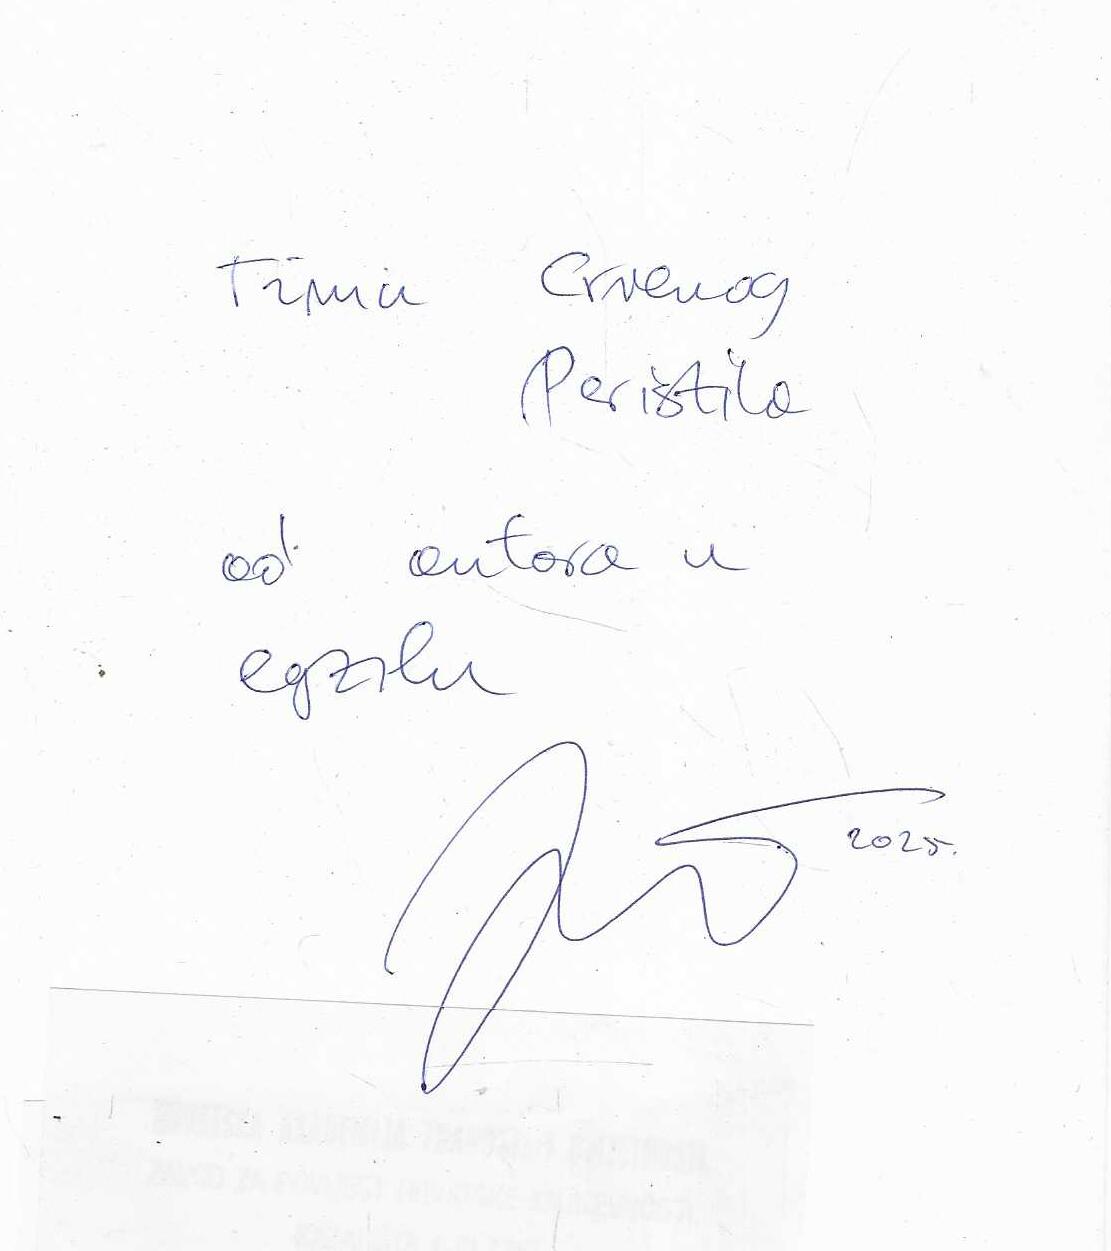 Timu Crvenog
Peristila
od autora u
egzilu
2025.